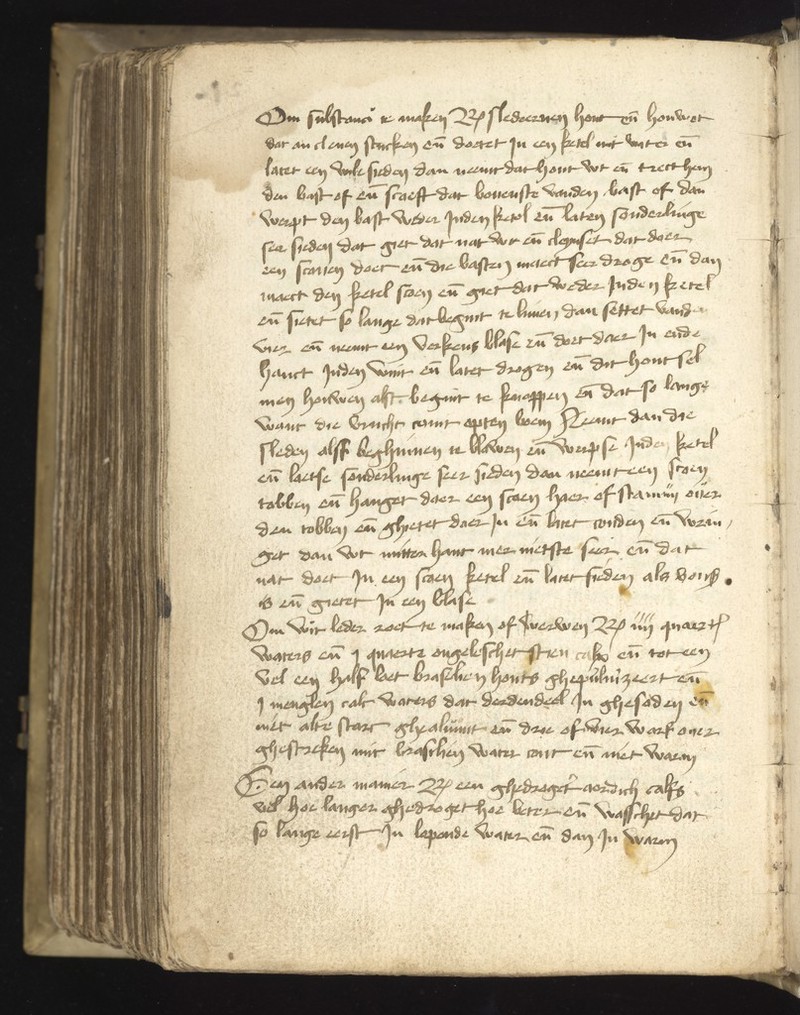 Om substanci te maken Rp sledoernen hout eñ houwet
dat an clenen stucken eñ doetet In een ketel mit water eñ
latet een wile sieden dan neemt dat hout wt eñ trect hem
den bast of eñ scaeft dat bouenste vanden bast of dan
werpt den bast weder Inden ketel eñ laten sonderlinge
seer sieden dat giet dat nat wt eñ dat doer
een scoen doec eñ die basten maect seer droge eñ dan
maect den ketel scoen eñ giet dat weder Inden ketel
eñ sietet so lange dat begint te limen dan settet vanden
vier eñ neemt een verkens blase eñ doet daer In ende
hanct Inden wint eñ latet drogen eñ dit hout sel
men houwen alst begint te knoppen eñ dat so lange
want die vrucht comt opten boem Neemt dan die
sleden alsse beghinnen te blawen eñ werpse Inden ketel
eñ laetse sonderlinge seer sieden dan neemt een scoen
tobben eñ hanget daer een scoen haer of stamijn ouer
den tobben eñ ghietet daer In eñ latet couden eñ wrin
get dan wt mitter hant mer nietste seer eñ dat
nat doet In een scoen ketel eñ latet sieden als voirs
is eñ gietet In een blase
Om wit leder roet te maken of verwen Rp iiij quaerten
waters eñ 1 quaerte ongelescht stien calx eñ tot een
vel een half loet brasilien houts ghepuluizeert eñ
1 menglen calc waters dat derdendeel In ghesoden eñ
niet alte starc ghealuunt eñ drie of vier warf ouer
ghestreken mit brasilien water cout eñ niet warm
Een ander manier Rp een ghedroget calfs
vel hoe langer ghedroget hoe beter eñ wasschet dat
so lange eerst In lopende water eñ dan In warm